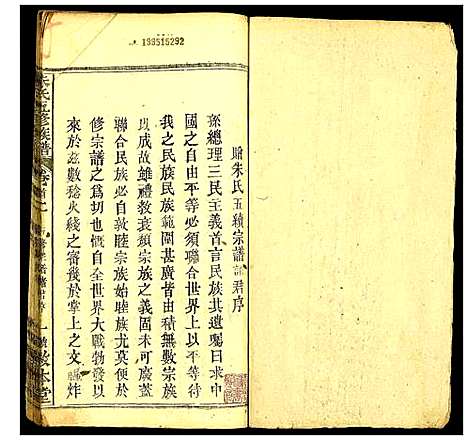 195515292
贈朱氏五續宗譜諸君序
孫總理三民主義首言民族其遺囑曰求中
國之自由平等必須聯合世界上以平等待
我之民族民族範圍甚廣皆由積無數宗族
以成故雖禮教衰頹宗族之義固未可廢蓋
聯合民族必自敦睦宗族始睦族尤莫便於
修宗譜之爲切也慨自全世界大戰勃發以
來於茲數稔火綫之審幾於掌上之文炸
朱氏五修族譜
卷首之一
敦本堂